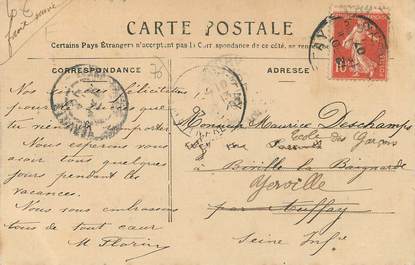 CARTE POSTALE
Certains Pays Étrangers n'acceptant pas la Correspondance de ce côté, se ren
CORRESPONDANCE
Nos félicitations
pour que
tu viens
Nous espérons vous
avoir tous quelques
jours pendant les
vacances.
Nous vous embrassons
tous de tout cœur
M Florin
ADRESSE
Monsieur Maurice Deschamps
Ecole des Garçons
à Biville la Baignarde
Yerville
par Auffay
Seine Infre
10